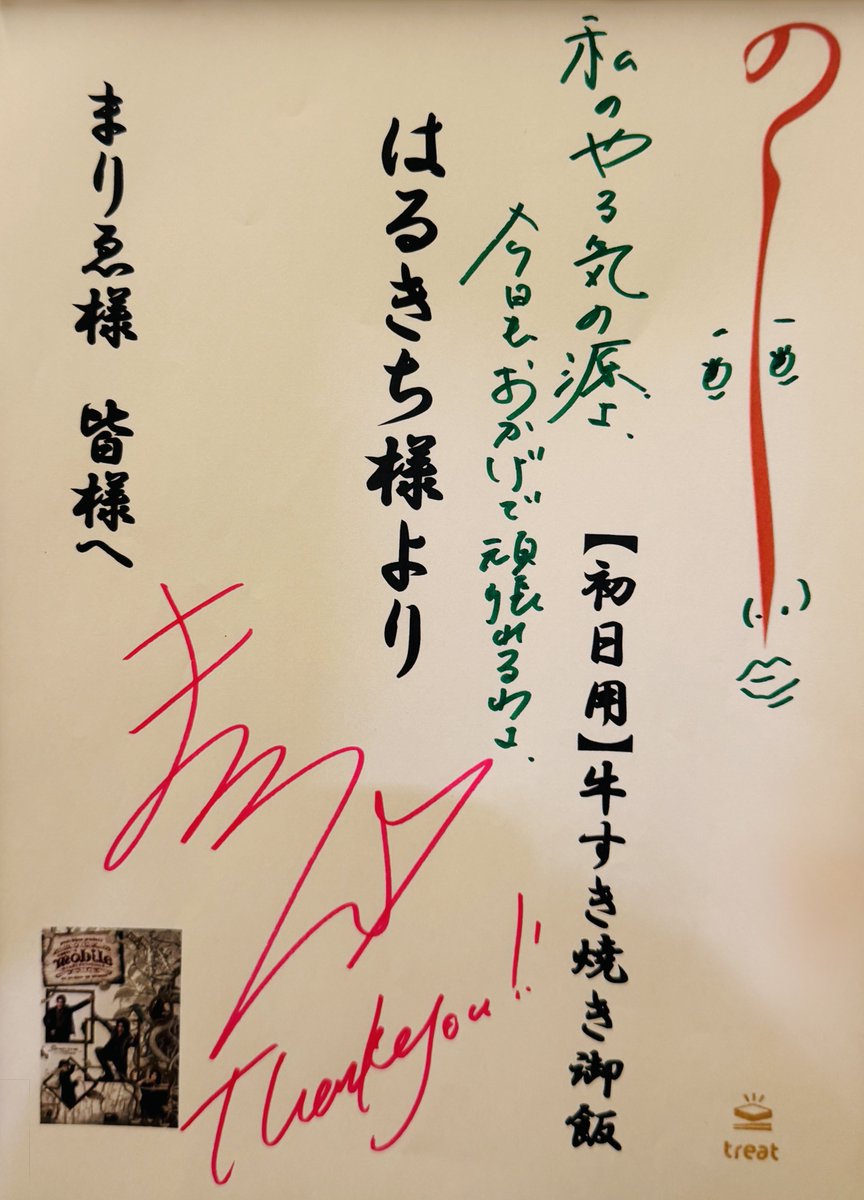 の
め め
私のやる気の源よ、
今日もおかげで頑張れるわよ、
【初日用】牛すき焼き御飯
はるきち様より
まりゑ様 皆様へ
Thank you!!
mobile
treat